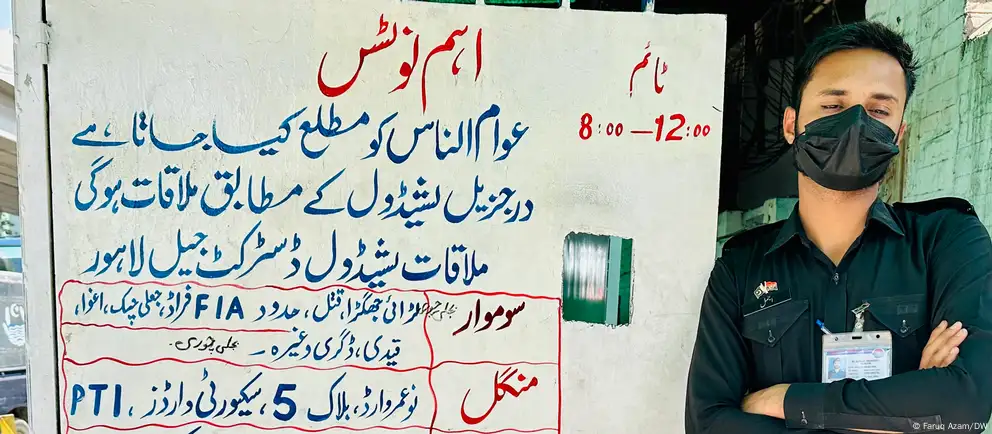 اہم نوٹس
ٹائم
8:00 — 12:00
عوام الناس کو مطلع کیا جاتا ہے
درجزیل شیڈول کے مطابق ملاقات ہوگی
ملاقات شیڈول ڈسٹرکٹ جیل لاہور
سوموار
لڑائی جھگڑا، قتل، حدود FIA فراڈ، جعلی چیک، اغوا،
قیدی، ڈگری وغیرہ ۔ بجلی چوری ۔
منگل
نوعمر وارڈ، بلاک 5، سیکیورٹی وارڈز، PTI
© Faruq Azam/DW